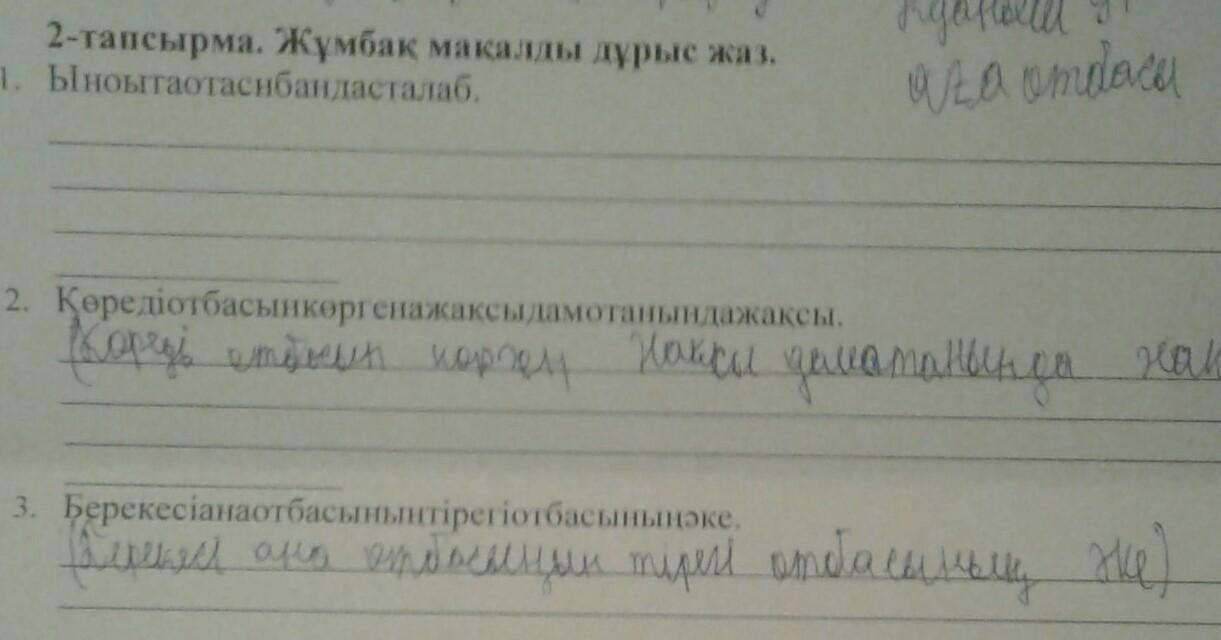 2-тапсырма. Жұмбақ мақалды дұрыс жаз.
аға отбасы
1. Ыноытаотаснбандасталаб.
2. Көредіотбасынкөргенажақсыдамотанындажақсы.
Кореді отбасын корген жаксы даматанынңда жак
3. Берекесіанаотбасыныңтірегіотбасыныңәке.
(Берекесі ана отбасыңын тірегі отбасының әке)